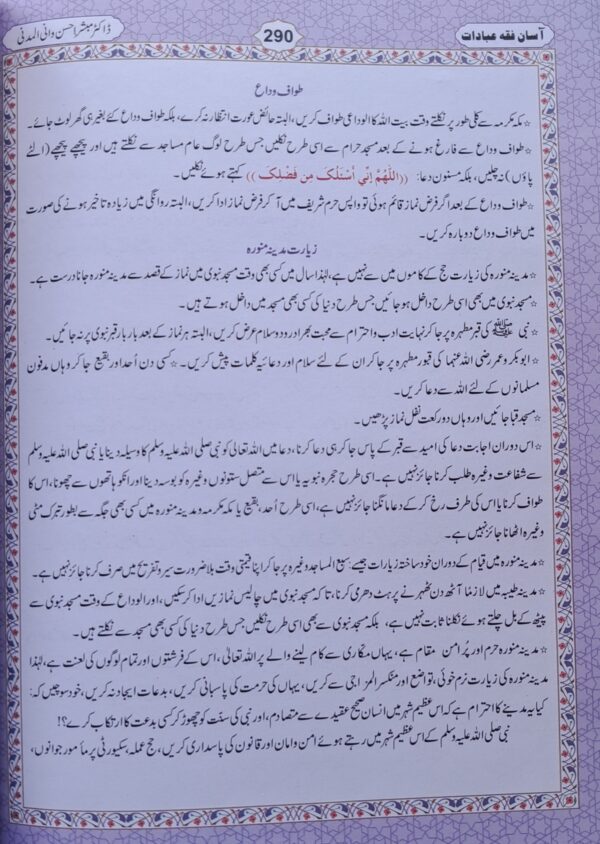 آسان فقہ عبادات
290
ڈاکٹر مبشر احسن وانی المدنی
طواف وداع
٭ مکہ مکرمہ سے کلی طور پر نکلتے وقت بیت اللہ کا الوداعی طواف کریں، البتہ حائض عورت انتظار نہ کرے، بلکہ طواف وداع کے بغیر ہی گھر لوٹ جائے۔
٭ طواف وداع سے فارغ ہونے کے بعد مسجد حرام سے اسی طرح نکلیں جس طرح لوگ عام مساجد سے نکلتے ہیں اور پیچھے پیچھے (الٹے
پاؤں) نہ چلیں، بلکہ مسنون دعا: ((اَللّٰهُمَّ اِنِّي أَسْئَلُكَ مِن فَضْلِكَ)) کہتے ہوئے نکلیں۔
٭ طواف وداع کے بعد اگر فرض نماز قائم ہوئی تو واپس حرم شریف میں آ کر فرض نماز ادا کریں، البتہ روانگی میں زیادہ تاخیر ہونے کی صورت
میں طواف وداع دوبارہ کریں۔
زیارت مدینہ منورہ
٭ مدینہ منورہ کی زیارت حج کے کاموں میں سے نہیں ہے، لہٰذا سال میں کسی بھی وقت مسجد نبوی میں نماز کے قصد سے مدینہ منورہ جانا درست ہے۔
٭ مسجد نبوی میں بھی اسی طرح داخل ہو جائیں جس طرح دنیا کی کسی بھی مسجد میں داخل ہوتے ہیں۔
٭ نبی ﷺ کی قبر مطہرہ پر جا کر نہایت ادب و احترام سے محبت بھرا درود و سلام عرض کریں، البتہ ہر نماز کے بعد بار بار قبر نبوی پر نہ جائیں۔
٭ ابو بکر و عمر رضی اللہ عنہما کی قبور مطہرہ پر جا کر ان کے لئے سلام اور دعائیہ کلمات پیش کریں۔ ٭ کسی دن اُحد اور بقیع جا کر وہاں مدفون
مسلمانوں کے لئے اللہ سے دعا کریں۔
٭ مسجد قبا جائیں اور وہاں دو رکعت نفل نماز پڑھیں۔
٭ اس دوران اجابت دعا کی امید سے قبر کے پاس جا کر ہی دعا کرنا، دعا میں اللہ تعالیٰ کو نبی صلی اللہ علیہ وسلم کا وسیلہ دینا یا نبی صلی اللہ علیہ وسلم
سے شفاعت وغیرہ طلب کرنا جائز نہیں ہے۔ اسی طرح حجرہ نبویہ یا اس سے متصل ستونوں وغیرہ کو بوسہ دینا اور انکو ہاتھوں سے چھونا، اس کا
طواف کرنا یا اس کی طرف رخ کر کے دعا مانگنا جائز نہیں ہے، اسی طرح اُحد، بقیع یا مکہ مکرمہ و مدینہ منورہ میں کسی بھی جگہ سے بطور تبرک مٹی
وغیرہ اٹھانا جائز نہیں ہے۔
٭ مدینہ منورہ میں قیام کے دوران خود ساختہ زیارات جیسے: سبع المساجد وغیرہ پر جا کر اپنا قیمتی وقت بلا ضرورت سیر و تفریح میں صرف کرنا جائز نہیں ہے۔
٭ مدینہ طیبہ میں لازماً آٹھ دن ٹھہرنے پر ہٹ دھرمی کرنا، تا کہ مسجد نبوی میں چالیس نمازیں ادا کر سکیں، اور الوداع کے وقت مسجد نبوی سے
پیٹھ کے بل چلتے ہوئے نکلنا ثابت نہیں ہے، بلکہ مسجد نبوی سے بھی اسی طرح نکلیں جس طرح دنیا کی کسی بھی مسجد سے نکلتے ہیں۔
٭ مدینہ منورہ حرم اور پُر امن مقام ہے، یہاں مکاری سے کام لینے والے پر اللہ تعالیٰ، اس کے فرشتوں اور تمام لوگوں کی لعنت ہے، لہٰذا
مدینہ منورہ کی زیارت نرم خوئی، تواضع اور منکسر المزاجی سے کریں، یہاں کی حرمت کی پاسبانی کریں، بدعات ایجاد نہ کریں، خود سوچیں کہ:
کیا یہ مدینے کا احترام ہے کہ اس عظیم شہر میں انسان صحیح عقیدے سے متصادم، اور نبی کی سنت کو چھوڑ کر کسی بدعت کا ارتکاب کرے؟!
نبی صلی اللہ علیہ وسلم کے اس عظیم شہر میں رہتے ہوئے امن و امان اور قانون کی پاسداری کریں، حج عملہ، سکیورٹی پر مأمور جوانوں،